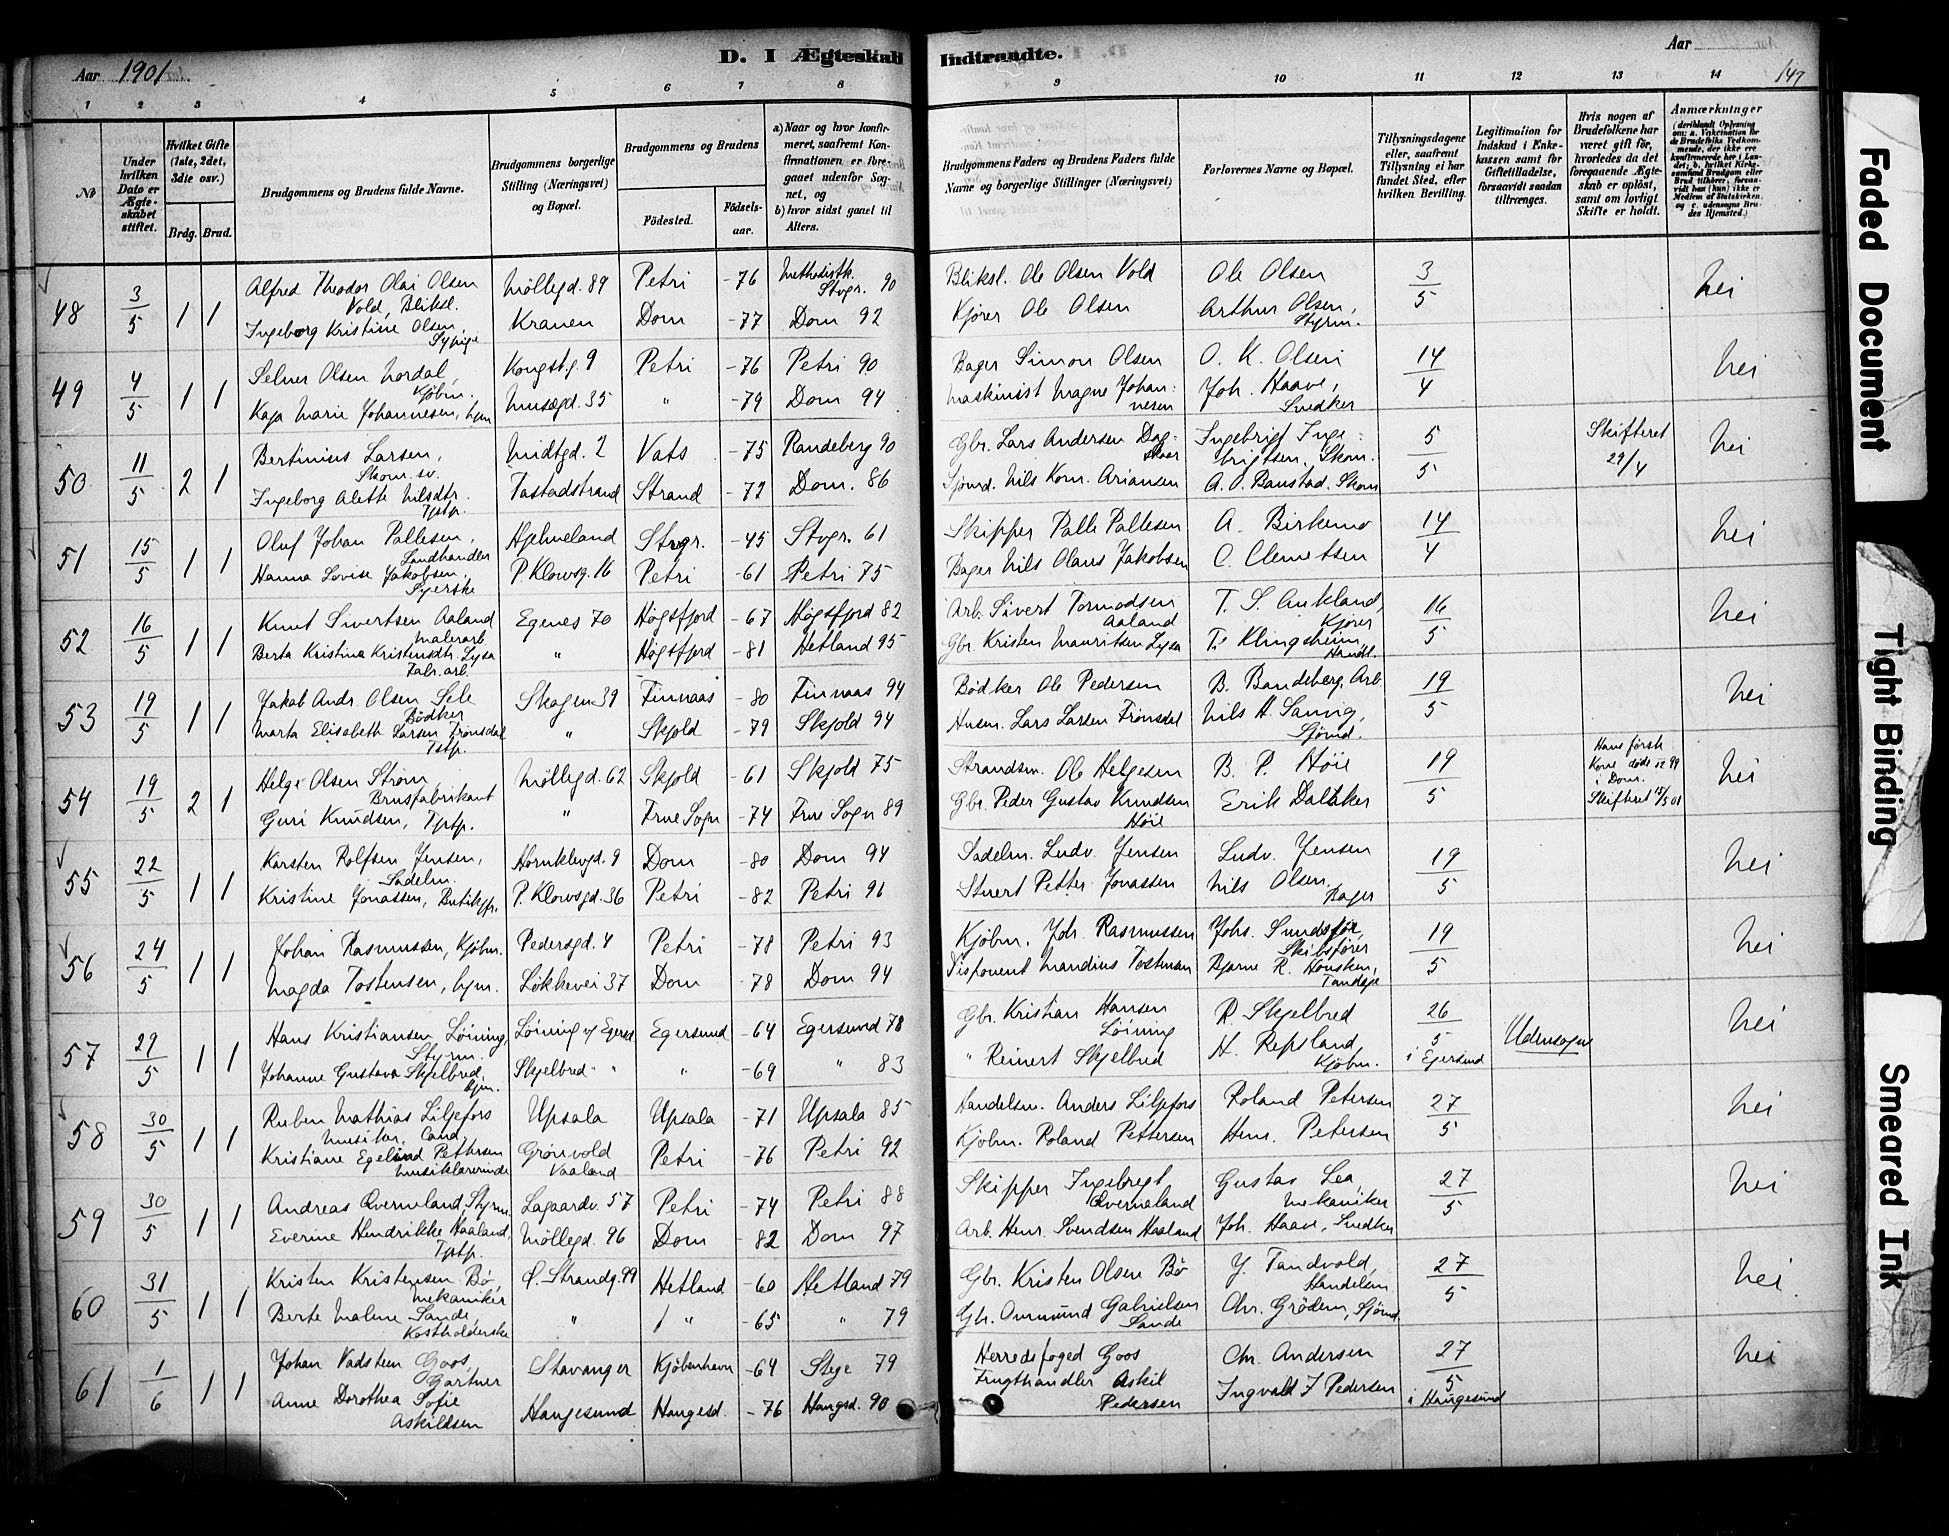 D. I Ægteskab Indtrædte.
Aar 1901
Aar
147
1 2 3 4 5 6 7 8 9 10 11 12 13 14
No
Under hvilken Dato er Ægteskabet stiftet.
Hvilket Gifte (1ste, 2det, 3die osv.)
Brdg. Brud.
Brudgommens og Brudens fulde Navne.
Brudgommens borgerlige Stilling (Næringsvei) og Bopæl.
Brudgommens og Brudens
Födested. Födselsaar.
a) Naar og hvor konfirmeret, saafremt Konfirmationen er foregaaet udenfor Sognet, og
b) hvor sidst gaaet til Alters.
Brudgommens Faders og Brudens Faders fulde Navne og borgerlige Stillinger (Næringsvei)
Forlovernes Navne og Bopæl.
Tillysningsdagene eller, saafremt Tillysning ei har fundet Sted, efter hvilken Bevilling.
Legitimation for Indskud i Enkekassen samt for Giftetilladelse, forsaavidt saadan tiltrænges.
Hvis nogen af Brudefolkene har været gift før, hvorledes da det foregaaende Ægteskab er opløst, samt om lovligt Skifte er holdt.
Anmærkninger
48 3/5 1 1 Alfred Theodor Olai Olsen Vold, Bliksl. Möllegd. 89 Petri -76 Methodistk. Stvgr. 90 Bliksl. Ole Olsen Vold Ole Olsen 3/5 Nei
Ingeborg Kristine Olsen, Sypige Kranen Dom -77 Dom 92 Kjører Ole Olsen Arthur Olsen, Styrm.
49 4/5 1 1 Selmer Olsen Nordal, Kjøbm. Kongstg. 9 Petri -76 Petri 90 Bager Simon Olsen O. K. Olsen 14/4 Nei
Kaja Marie Johannesen, hjm Musægd. 35 " -79 Dom 94 Maskinist Magne Johannesen Joh. Haave, Snedker
50 11/5 2 1 Bertinius Larsen, Skom. sv. Midtgd. 2 Vats -75 Randeberg 90 Gbr. Lars Andersen Ingebrigt Ingebrigtsen, Skom. 5/5 Skifteret 29/4 Nei
Ingeborg Alette Nilsdtr. Tpstp. Tastadstrand Strand -72 Dom. 86 Sjömd. Nils Korn. Ariansen A. O. Banstad. Skom
51 15/5 1 1 Oluf Johan Pallesen, Landhandler Hjelmeland Stvgr. -45 Stvgr. 61 Skipper Palle Pallesen A. Birkemo 14/4 Nei
Hanna Lovise Jakobsen. Syerske P. Klowsg. 16 Petri -61 Petri 75 Bager Nils Olaus Jakobsen C. Clemetsen
52 16/5 1 1 Knut Sivertsen Aaland Malerarb Egenes 70 Högsfjord -67 Högsfjord 82 Arb. Sivert Tormodsen Aaland T. S. Aukland, Kjører 16/5 Nei
Berta Kristine Kristensdtr. Lysa Fabr. arb. " Högsfjord -81 Hetland 95 Gbr. Kristen Mauritsen Lysa T. Klingsheim Handl.
53 19/5 1 1 Jakob Andr. Olsen Sele Bødker Skagen 39 Finnaas -80 Finnaas 94 Bødker Ole Pedersen B. Bandeberg, Arb 19/5 Nei
Marta Elisabeth Larsen Frønsdal Tstp. " Skjold -79 Skjold 94 Husm. Lars Larsen Frønsdal Nils H. Sannig, Sjömd.
54 19/5 2 1 Helge Olsen Strøm, Brusfabrikant Möllegd. 62 Skjold -61 Skjold 75 Strandsm. Ole Helgesen B. P. Høie 19/5 Hans første Kone døde 99 i Dom. Skifteret 15/5 01 Nei
Guri Knudsen, Tpstp. " Frue Sogn -74 Frue Sogn 89 Gbr. Peder Gustav Knudsen Høie Erik Daltaker
55 22/5 1 1 Karsten Rolfsen Jensen, Sadelm. Hornklevgd. 9 Dom -80 Dom 94 Sadelm. Ludv. Jensen Ludv. Jensen 19/5 Nei
Kristine Jonassen, Butikjfr. P. Klowsgd. 36 Petri -82 Petri 96 Stuert Petter Jonassen Nils Olsen, Bager
56 24/5 1 1 Johan Rasmussen, Kjøbm. Pedersgd. 4 Petri -78 Petri 93 Kjøbm. Joh. Rasmussen Johs. Sundsför, Skibsfører 19/5 Nei
Magda Tostensen, hjm. Lökkevei 37 Dom -78 Dom 94 Disponent Mandius Tostensen Bjarne R. Housken, Tandlæge
57 29/5 1 1 Hans Kristiansen Löining, Styrm. Löining v/ Egers. Egersund -64 Egersund 78 Gbr. Kristian Hansen Löining R. Skjelbred 26/5 i Egersund Udensogns Nei
Johanne Gustava Skjelbred, hjm. Skjelbred " " -69 " 83 " Reinert Skjelbred H. Repsland, Kjøbm.
58 30/5 1 1 Ruben Mathias Liljefors Musiker, Cand. Upsala Upsala -71 Upsala 85 Handelsm. Anders Liljefors Roland Petersen 27/5 Nei
Kristiane Egelind Pettersen Musiklærerinde Grønvold Vaaland Petri -76 Petri 92 Kjøbm. Roland Pettersen Henr. Petersen
59 30/5 1 1 Andreas Qverneland, Styrm. Lagaardv. 57 Petri -74 Petri 88 Skipper Ingebregt Qverneland Gustav Lea Mekaniker 27/5 Nei
Everine Hendrikke Haaland, Tpstp. Möllegd. 96 Dom -82 Dom 97 Arb. Henr. Svendsen Haaland Joh. Haave, Snedker
60 31/5 1 1 Kristen Kristensen Bø, Mekaniker Ø. Strandg. 99 Hetland -60 Hetland 79 Gbr. Kristen Olsen Bø Y. Tandvold, Handelsm 27/5 Nei
Berte Malene Sande, Kostholderske " " -65 " 79 Gbr. Ommund Gabrielsen Sande Chr. Grödem, Sjömd.
61 1/6 1 1 Johan Vadsteen Goos, Gartner Stavanger Kjøbenhavn -64 Stege 79 Herredsfoged Goos Chr. Andersen 27/5 i Haugesund Nei
Anne Dorothea Sofie Askildsen Haugesund Haugesd. -76 Haugsd. 90 Frugthandler Askil Pedersen Ingvald J Pedersen
Faded Document
Tight Binding
Smeared Ink